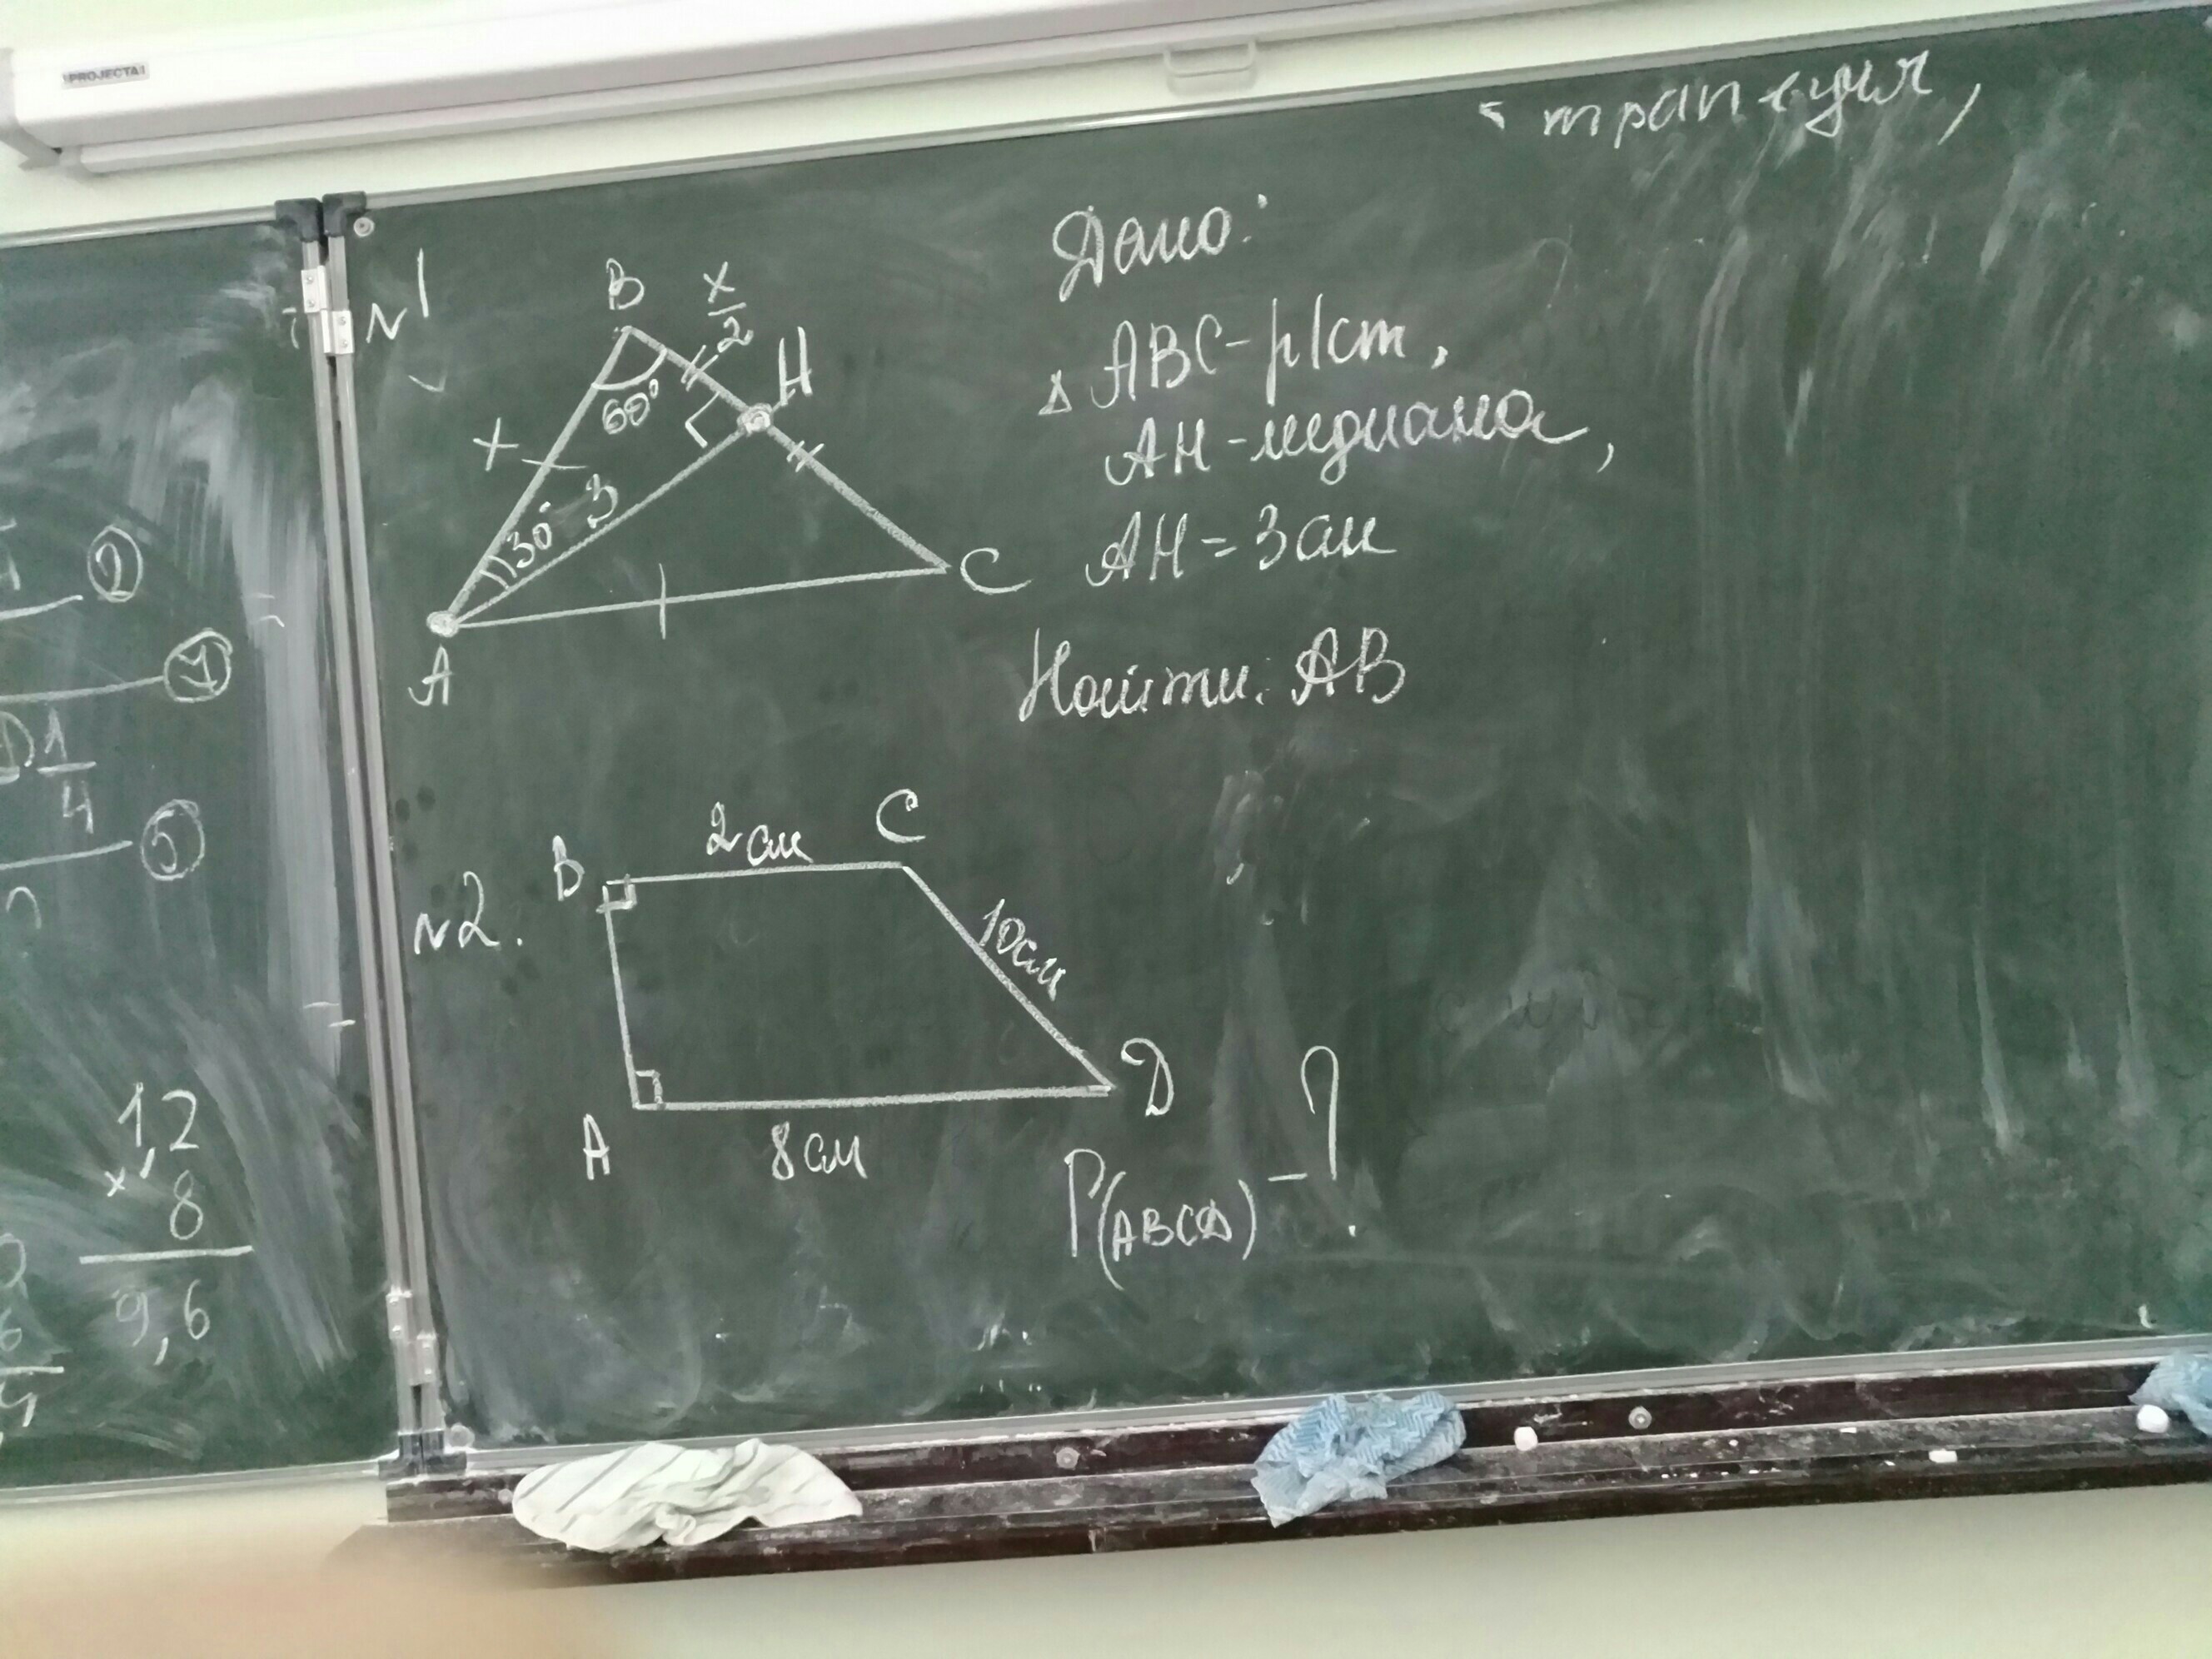 PROJECTA
трапеция,
N1
B
x/2
H
x
60°
30°
3
A
C
Дано:
△ ABC - р/ст,
AH - медиана,
AH = 3 см
Найти: AB
N2.
B
2 см
C
10 см
A
8 см
D
P(ABCD) - ?
2
4
1/4
5
1,2
× 8
9,6